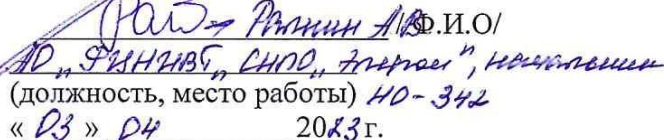 А.В. /Ф.И.О/
АО „ СНПО „ Элерон", начальник
(должность, место работы) НО-342
« 03 » 04 2023 г.